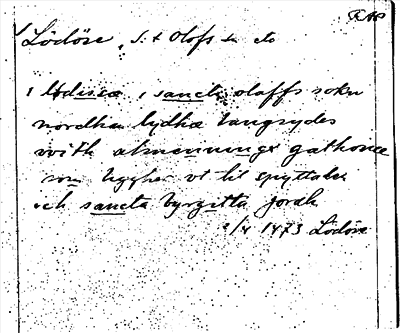 Lödöse, S:t Olofs sn etc
i lødisæ i sancti olaffs sokn
nordhan lydhæ langsydes
with almenninngx gathonæ
som ligger vt til spyttalen
och sancta byrgitta jordh
2/4 1473 Lödöse